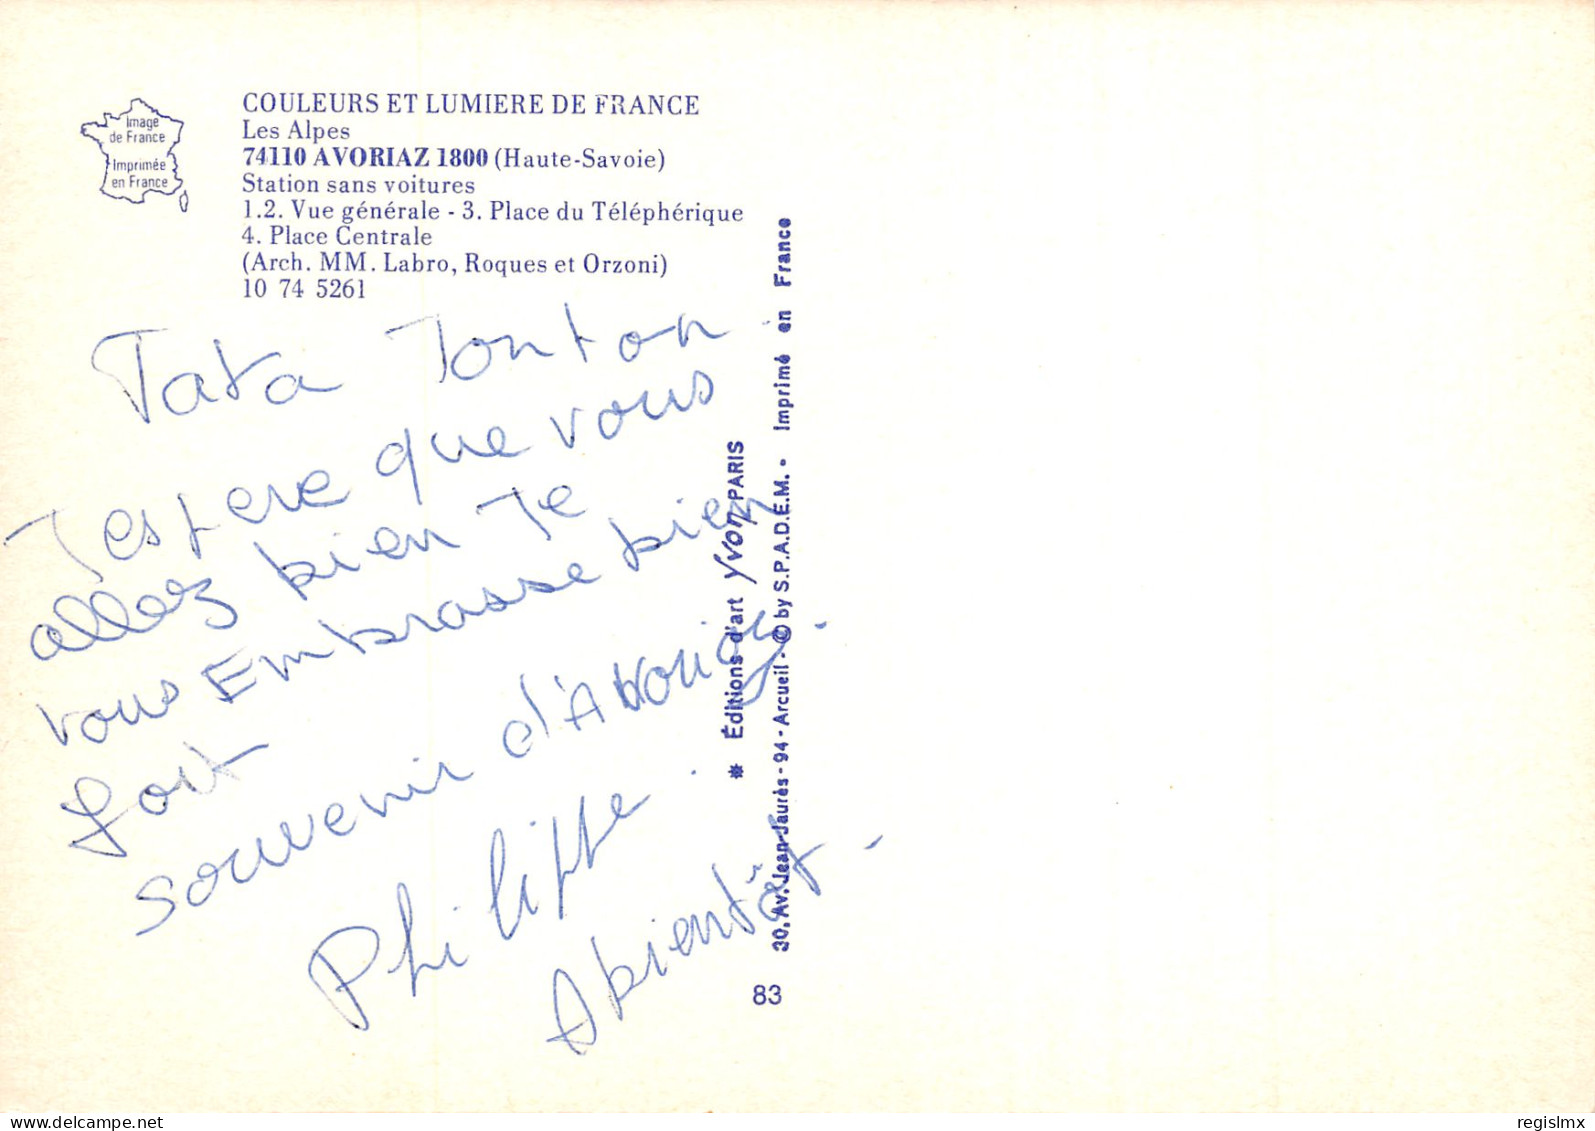 Image
de France
Imprimée
en France
COULEURS ET LUMIERE DE FRANCE
Les Alpes
74110 AVORIAZ 1800 (Haute-Savoie)
Station sans voitures
1.2. Vue générale - 3. Place du Téléphérique
4. Place Centrale
(Arch. MM. Labro, Roques et Orzoni)
10 74 5261
Tata Tonton
J'espere que vous
allez bien Je
vous Embrasse bien
fort
souvenir d'Avoriaz.
Philippe.
A bientôt.
Éditions d'art Yvon PARIS
30, Av. Jean-Jaurès - 94 - Arcueil - © by S.P.A.D.E.M. - Imprimé en France
83
delcampe.net
regislmx